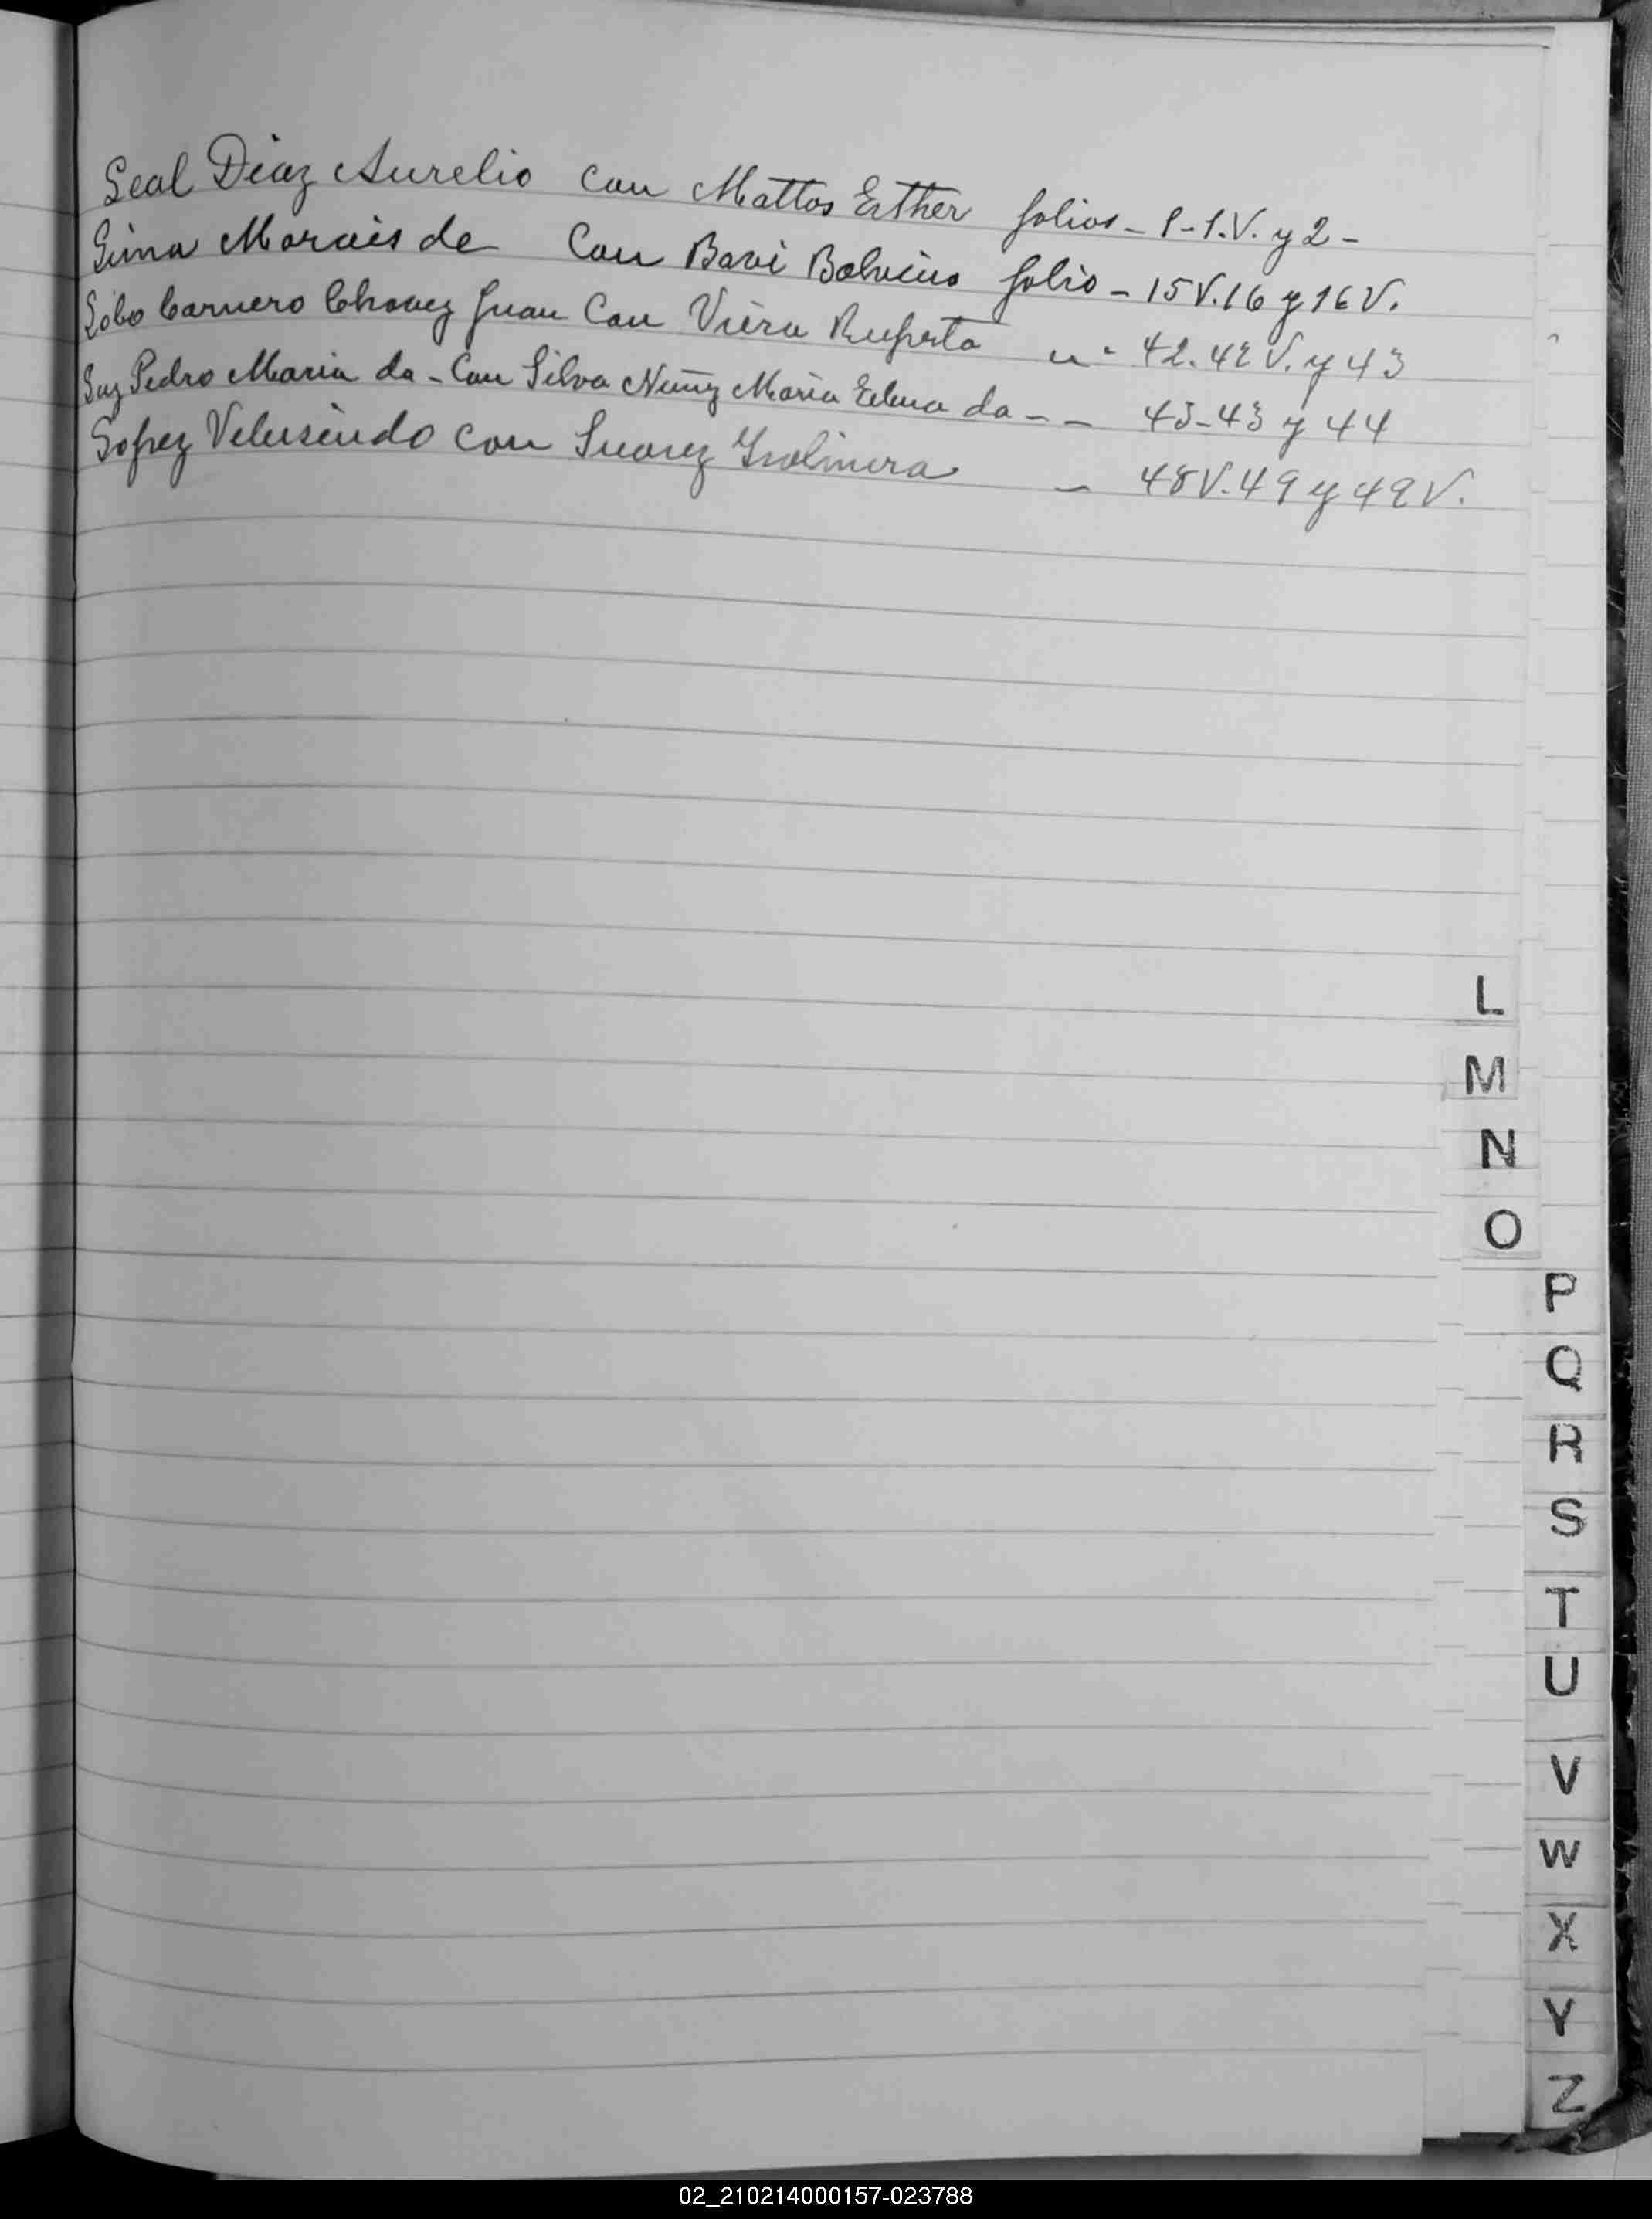 Leal Diaz Aurelio Con Mattos Esther folios - 1-1.V. y 2 -
Lima Morais de Con Bavi Balvino folio - 15V.16 y 16V.
Lobo Carnero Chavez Juan Con Viera Ruperta " - 42.42V. y 43
Luz Pedro Maria da - Con Silva Nuñez Maria Edma da - - 43-43 y 44
Lopez Velusindo con Suarez - 48V.49 y 49V.
L
M
N
O
P
Q
R
S
T
U
V
W
X
Y
Z
02_210214000157-023788